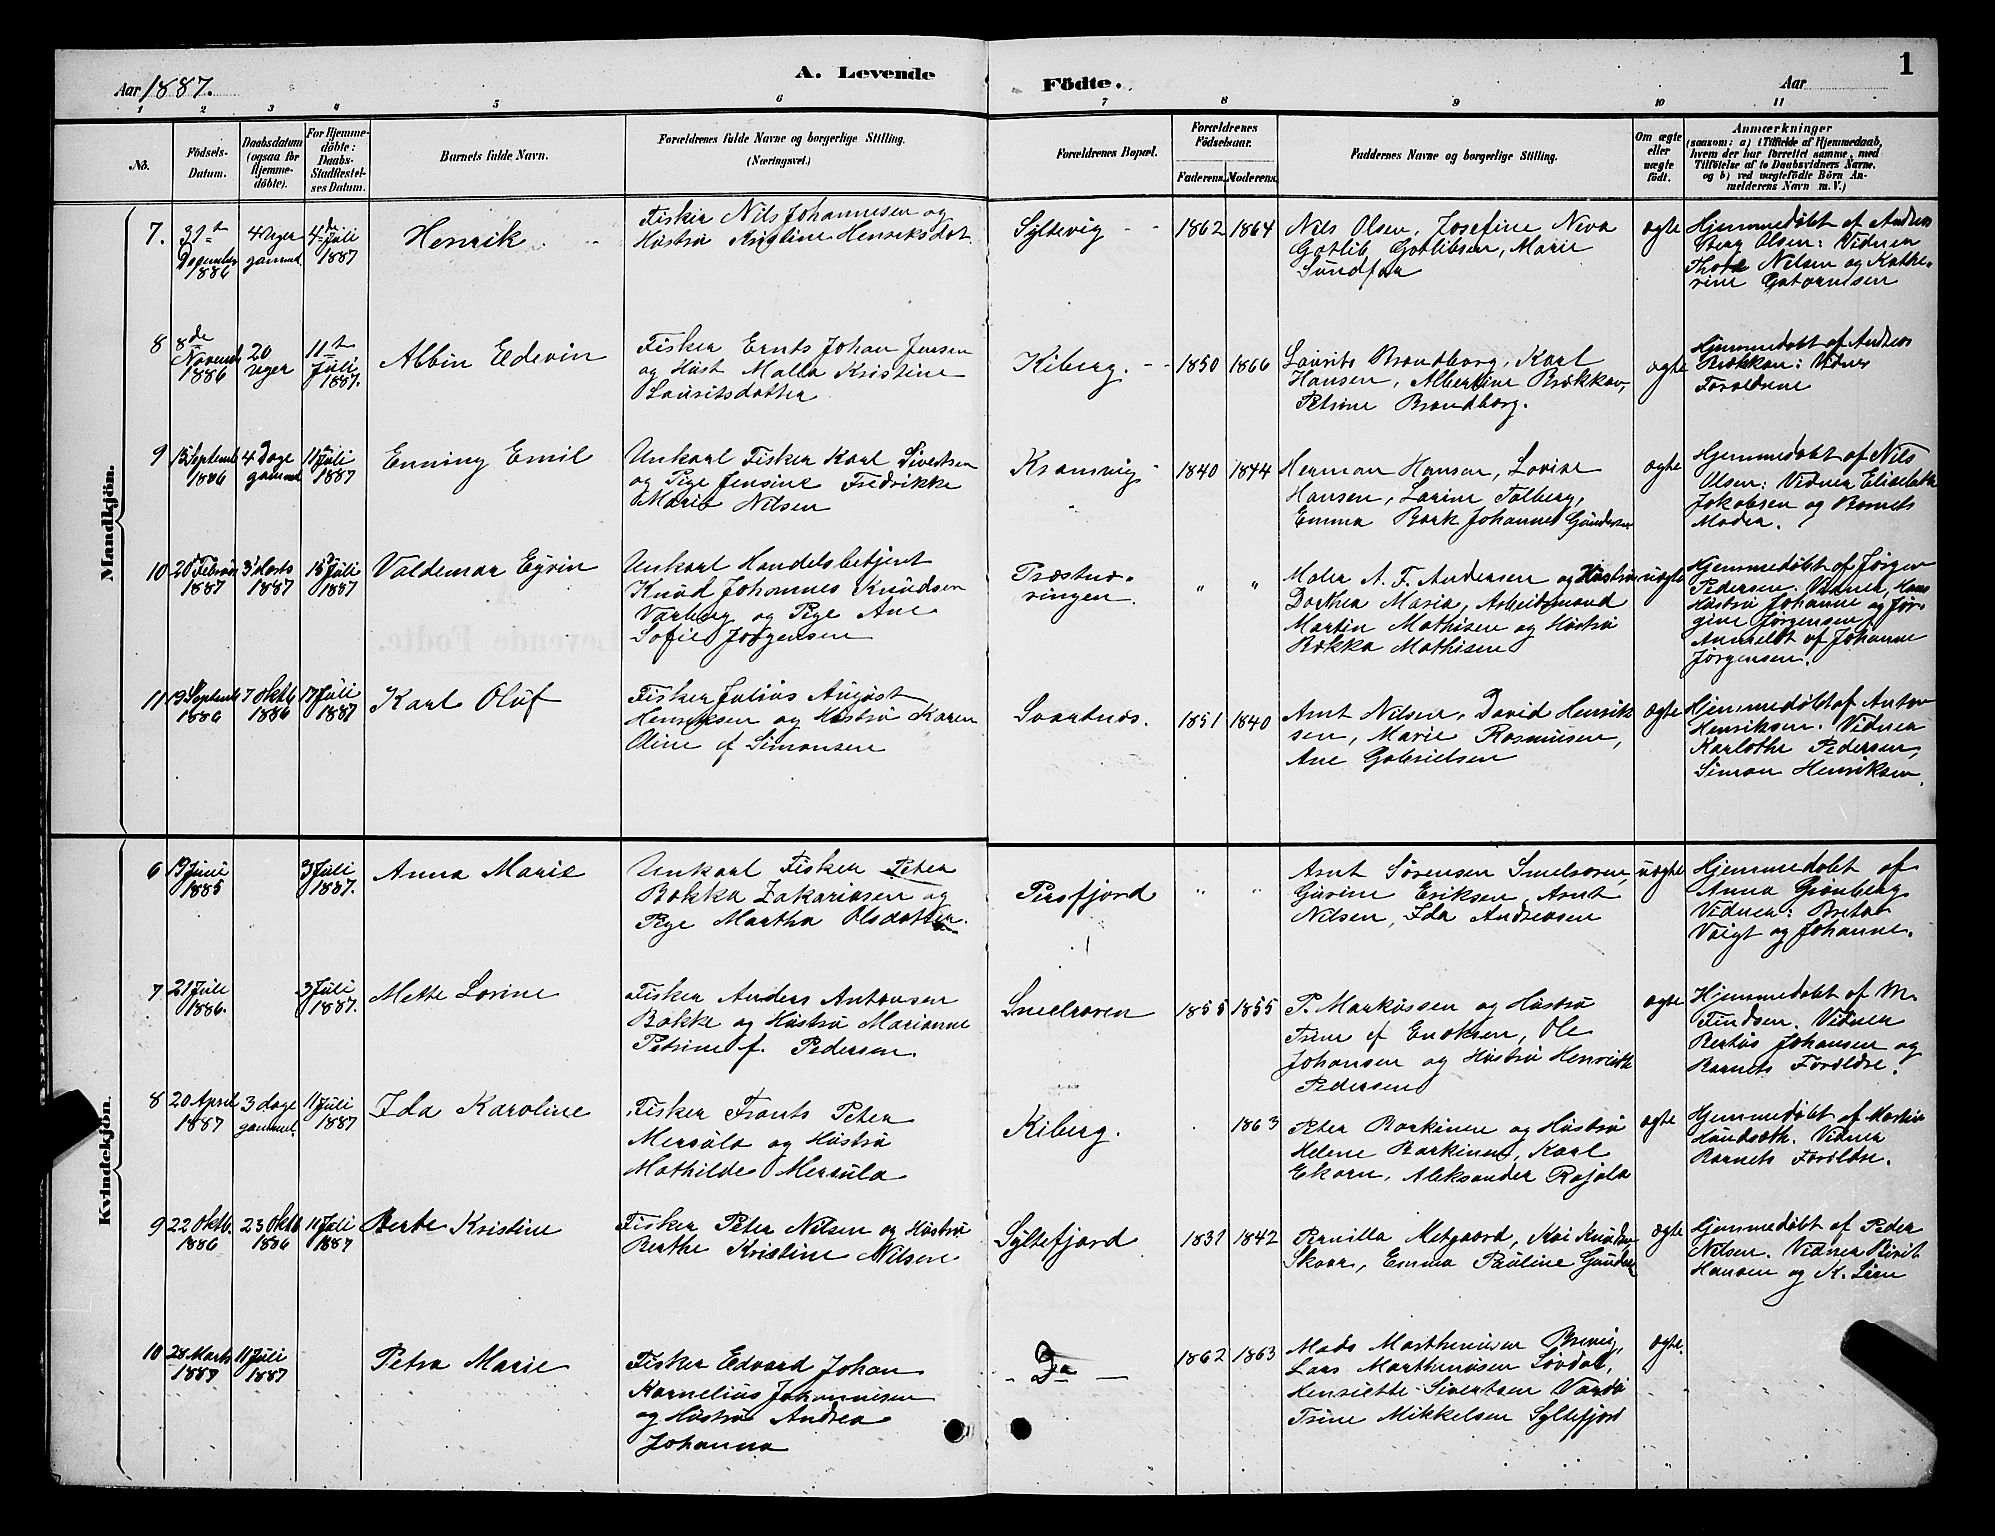 1
Aar 1887.
A. Levende
Födte.
Aar
1 2 3 4 5 6 7 8 9 10 11
Nô.
Födsels-
Datum.
Daabsdatum
(ogsaa for
Hjemme-
döbte).
For Hjemme-
döbte:
Daabs-
Stadfæstel-
ses Datum.
Barnets fulde Navn.
Forældrenes fulde Navne og borgerlige Stilling.
(Næringsvei.)
Forældrenes Bopæl.
Forældrenes
Födselsaar.
Faderens. Moderens.
Faddernes Navne og borgerlige Stilling.
Om ægte
eller
uægte
födt.
Anmærkninger
(saasom: a) i Tilfælde af Hjemmedaab,
hvem der har forrettet samme, med
Tilföielse af to Daabsvidners Navne.
og b) ved uægtefödte Börn An-
melderens Navn m. V.)
Mandkjön.
7.
31te
December
1886
4 Uger
gammel
4de Juli
1887
Henrik
Fisker Nils Johannesen og
Hustru Kristine Henriksdat
Syltevig
1862 1864
Nils Olsen, Josefine Neva
Gotlib Gotlibsen, Marie
Sundfær
ægte
Hjemmedøbt af Andreas
Berg Olsen: Vidner
Thora Nilsen og Kathe-
rine
8
8de
Novemb
1886
20
uger
11te
Juli
1887.
Albin Edevin
Fisker Ernts Johan Jensen
og Hust Malla Kristine
Lauritsdatter
Kiberg.
1850 1866
Laurits Brandborg, Karl
Hansen, Albertine Brækkan,
Petrine Brandborg.
ægte
Hjemmedøbt af Andreas
Brækkan: Vidner
Forældrene
9
13 Septemb
1886
4 Dage
gammel
11 Juli
1887
Enning Emil
Unkarl Fisker Karl Sivertsen
og Pige Jensine Fredrikke
Marie Nilsen
Kramvig
1840 1844
Herman Hansen, Lovise
Hansen, Larine Tolberg,
Emma Bark Johanne Gundersen
ægte
Hjemmedøbt af Nils
Olsen: Vidner Elisabeth
Jakobsen og Barnets
Moder.
10
20 Februar
1887
3 Marts
1887
15 Juli
1887
Valdemar Eyvin
Unkarl Handelsbetjent
Knud Johannes Knudsen
Varberg og Pige Ane
Sofie Jørgensen
Præstnæ-
ringen.
" "
Maler A. F. Andersen og Hustru
Dorthea Maria, Arbeidsmand
Martin Mathisen og Hustru
Rokka Mathisen
uægte
Hjemmedøbt af Jørgen
Pedersen. Vidner, Hans
Hustru Johanne og Jør-
gine Jørgensen
Anmeldt af Johanne
Jørgensen.
11
19 Septemb
1886
7 Oktb
1886
17 Juli
1887
Karl Oluf
Fisker Julius August
Henriksen og Hustru Karen
Oline f Simonsen
Svartnæs.
1851 1840
Arnt Nilsen, David Henrik
sen, Marie Rasmusen,
Ane Gabrielsen
ægte
Hjemmedøbt af Anton
Henriksen. Vidner
Karlothe Pedersen,
Simon Henriksen.
Kvindekjön.
6
19 Juni
1885
3 Juli
1887.
Anna Marie
Unkarl Fisker Peter
Bokka Zakariasen og
Pige Martha Olsdatter.
Persfjord
" "
Arnt Sørensen Smelroren,
Gurine Eriksen, Arnt
Nilsen, Ida Andreasen
uægte
Hjemmedøbt af
Anna Grønberg
Vidner: Breta
Voigt og Johanne.
7
21 Juli
1886.
3 Juli
1887.
Mette Lovine
Fisker Anders Antonsen
Bakke og Hustru Marianne
Petrine f. Pedersen.
Smelroren
1855 1855
P. Markussen og Hustru
Trine f Enoksen, Ole
Johansen og Hustru Henriette
Pedersen
ægte
Hjemmedøbt af M.
Findsen. Vidner
Bertus Johansen og
Barnets Forældre.
8
20 April
1887
3 dage
gammel.
11 Juli
1887
Ida Karoline
Fisker Frants Peter
Mersula og Hustru
Mathilde Mersula
Kiberg.
1863
Peter Barkinen og Hustru
Helene Barkinen, Karl
Ekorn, Aleksander Rajala
ægte
Hjemmedøbt af Martin
Hundsæth. Vidner
Barnets Forældre.
9
22 Oktb.
1886
23 Oktb
1886
11 Juli
1887
Berte Kristine
Fisker Peter Nilsen og Hustru
Berthe Kristine Nilsen
Syltefjord
1831 1842
Pernilla Metgaard, Kai Knudsen
Skaar, Emma Pauline Gundersen
ægte
Hjemmedøbt af Peder
Nilsen. Vidner Birit
Hansen og K. Siri
10
28 Marts
1887
11 Juli
1887
Petra Marie
Fisker Edvard Johan
Kornelius Johannesen
og Hustru Andrea
Johanna
- Do -
1862 1863
Mads Marthenusen Brevig,
Lars Marthenusen Løvdal,
Henriette Sivertsen Vardø
Trine Mikkelsen Syltefjord
ægte.